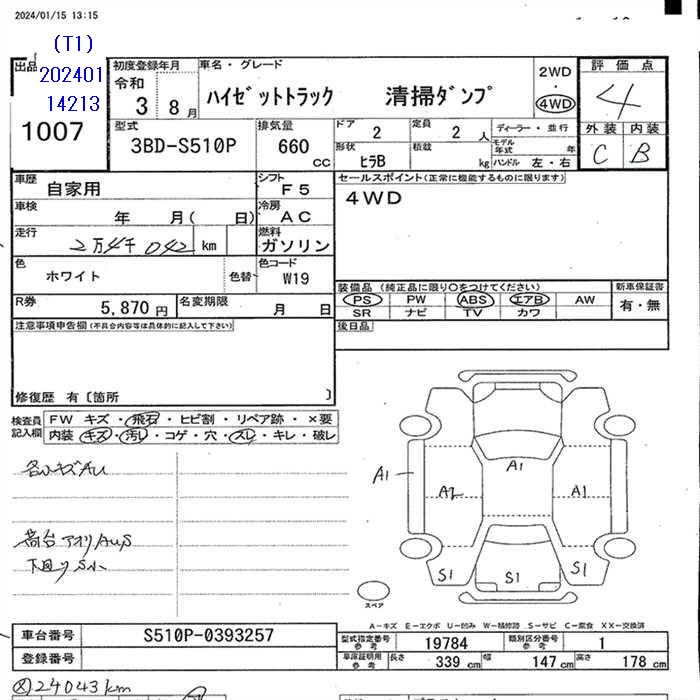 2024/01/15 13:15
(T1)
出品 202401
14213
1007
初度登録年月 車名・グレード
令和 3 8月 ハイゼットトラック 清掃ダンプ
2WD
4WD
評価点
4
外装 内装
C B
型式 3BD-S510P
排気量 660 cc
ドア 2
定員 2 人
形状 ヒラB
積載 kg
ディーラー・並行
モデル年式 年
ハンドル 左・右
車歴 自家用
シフト F5
セールスポイント(正常に機能するものに限ります)
4WD
車検 年 月( 日)
冷房 AC
走行 2万4千042 km
燃料 ガソリン
色 ホワイト 色替
色コード W19
R券 5,870 円
名変期限 月 日
装備品 (純正品に限り○をつけてください)
PS PW ABS エアB AW
SR ナビ TV カワ
新車保証書
有・無
注意事項申告欄(不具合内容等は具体的に記入して下さい)
後日品
修復歴 有〔箇所 〕
検査員記入欄
FW キズ・飛石・ヒビ割・リペア跡・×要
内装 キズ・汚レ・コゲ・穴・スレ・キレ・破レ
各小キズAU
荷台アオリAUS
下回りS小
A1
A1
A2
A1
S1
S1
S1
スペア
A-キズ E-エクボ U-凹み W-補修跡 S-サビ C-腐食 XX-交換済
車台番号 S510P-0393257
登録番号
型式指定番号 参考 19784
類別区分番号 参考 1
車庫証明用 参考 長さ 339 cm 幅 147 cm 高さ 178 cm
24043km